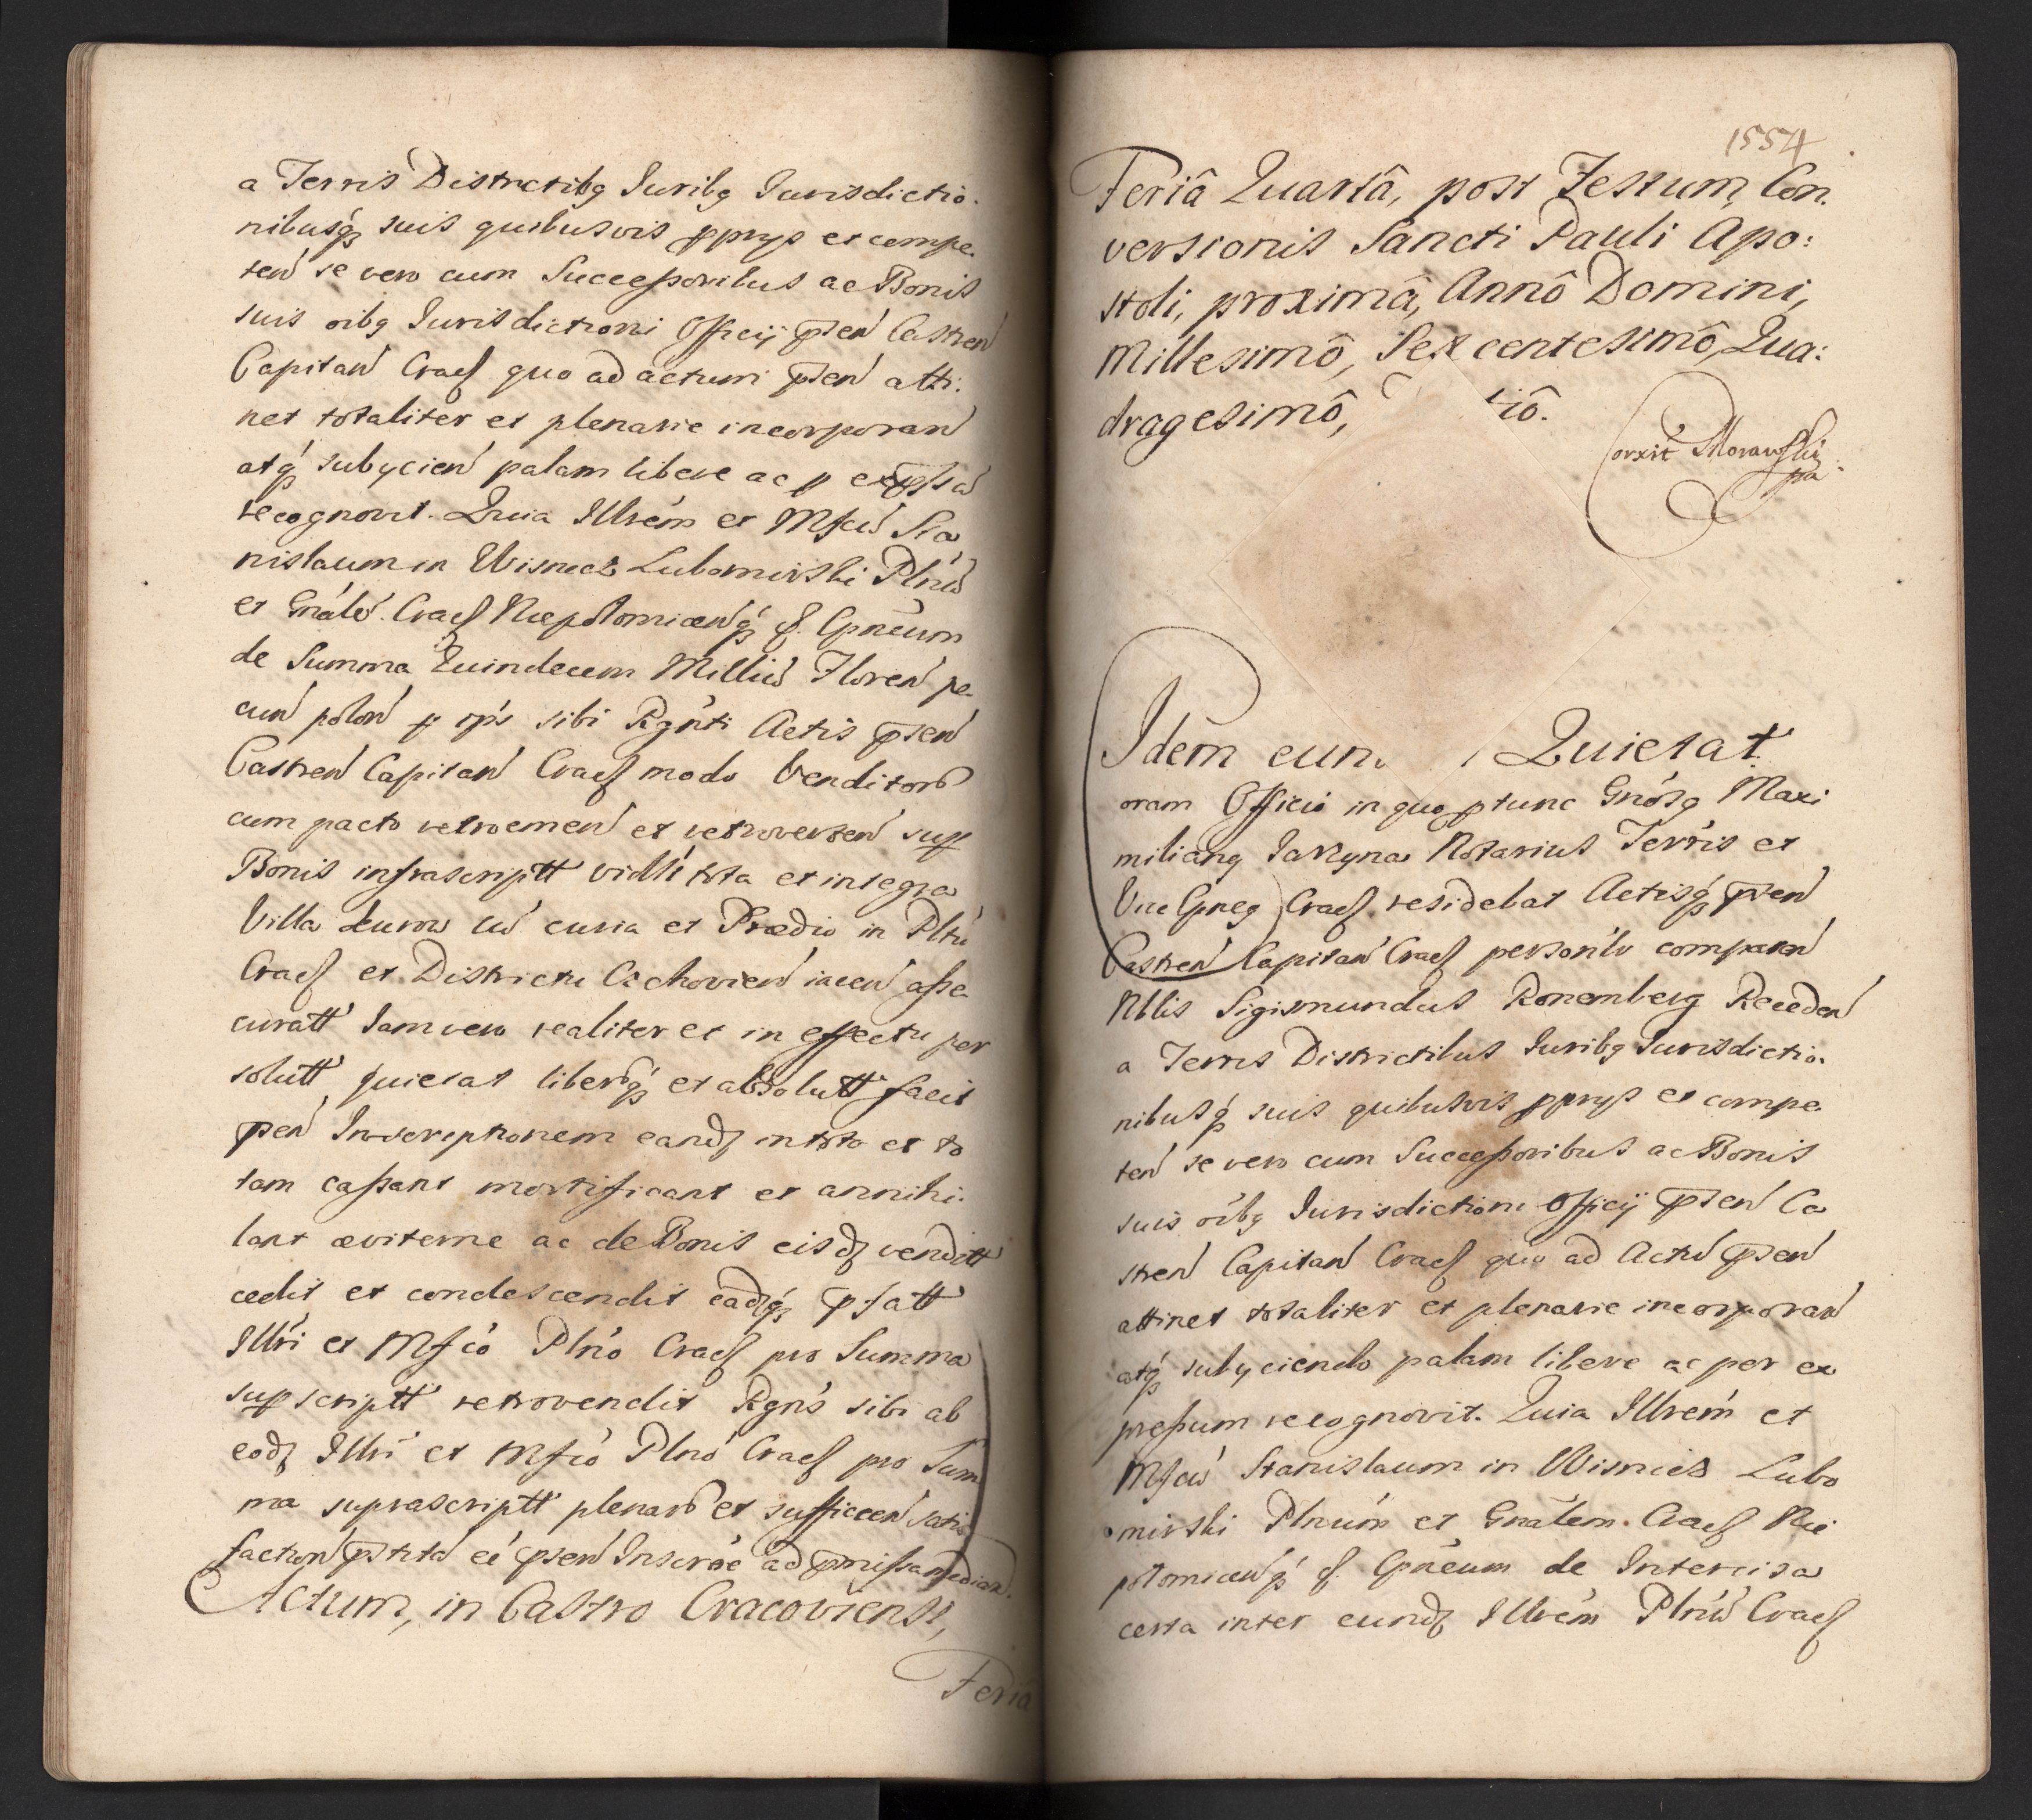 a Terris Districtibq Juribq Jurisdictio.
nibusq suis quibusvis pprys et compe
ten se vero cum Successoribus ac Bonis
suis oibq Jurisdictioni Officij psen Castren
Capitan Cracs quo ad actum psen atti.
net totaliter et plenarie incorporan
atq subycien palam libere ac p expssu
recognovit. Quia Illrem et Mfcu Sta
nislaum in Wisnicz Lubomirski Plnu
et Gnale. Cracs Niepolomicenq Cpneum
de Summa Quindecem Milliu Floren pe
cun polon p ips sibi Rgnti Actis psen
Castren Capitan Cracs modo Venditor
cum pacto retroemen et retroverten sup
Bonis infrascriptt vidlt tota et integra
Villa Zurow cu curia et Prædio in Pltu
Cracs et Districtu Czchovien iacen asse
curatt Jam vero realiter et in effectu per
solutt quietat liberq et absolutt facit
psen Inscriptionem eandz in toto et to
tam cassant mortificant et annihi.
lant æviterne ac de Bonis eisdz venditt
cedit et condescendit eadzq psatt
Illri et Mfco Plno Cracs pro Summa
supscriptt retrovendit Rgns sibi ab
eodz Illri et Mfco Plno Cracs pro Sum
ma suprascriptt plenar et sufficien satis
faction pstita ee psen Inscroe ad pmissa median.
Actum, in Castro Cracoviensi,
Feria
1554
Feriâ Quartâ, post Festum Con.
versionis Sancti Pauli Apo:
stoli, proximâ, Annô Domini,
Millesimô, Sexcentesimô, Qua:
dragesimô, tiô.
Corxit Morawski
pa
Idem eun Quietat
oram Officio in quo ptunc Gnosq Maxi
milianq Jarzyna Notarius Terris et
Vice Cpneq Cracs. residebat Actisq psen
Castren Capitan Cracs personlr comparen
Nblis Sigismundus Ronemberg Receden
a Terris Districtibus Juribq Jurisdictio.
nibusq suis quibusvis pprys et compe
ten se vero cum Successoribus ac Bonis
suis oibq Jurisdictioni Officij psen Ca
stren Capitan Cracs quo ad Actu psen
attinet totaliter et plenarie incorporan
atq subyciendo palam libere ac per ex
pressum recognovit. Quia Illrem et
Mfcu Stanislaum in Wisnicz Lubo
mirski Plnum et Gnalem. Cracs Nie
polomicenq Cpneum de Intercisa
certa inter eundz Illrem Plnu Cracs